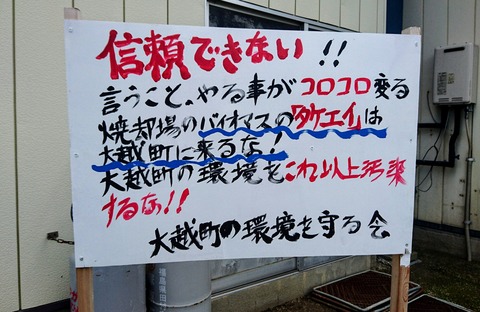 信頼できない!!
言うこと、やる事がコロコロ変る
焼却場のバイオマスの「タケエイ」は
大越町に来るな!
大越町の環境をこれ以上汚染
するな!!
大越町の環境を守る会
福島県田